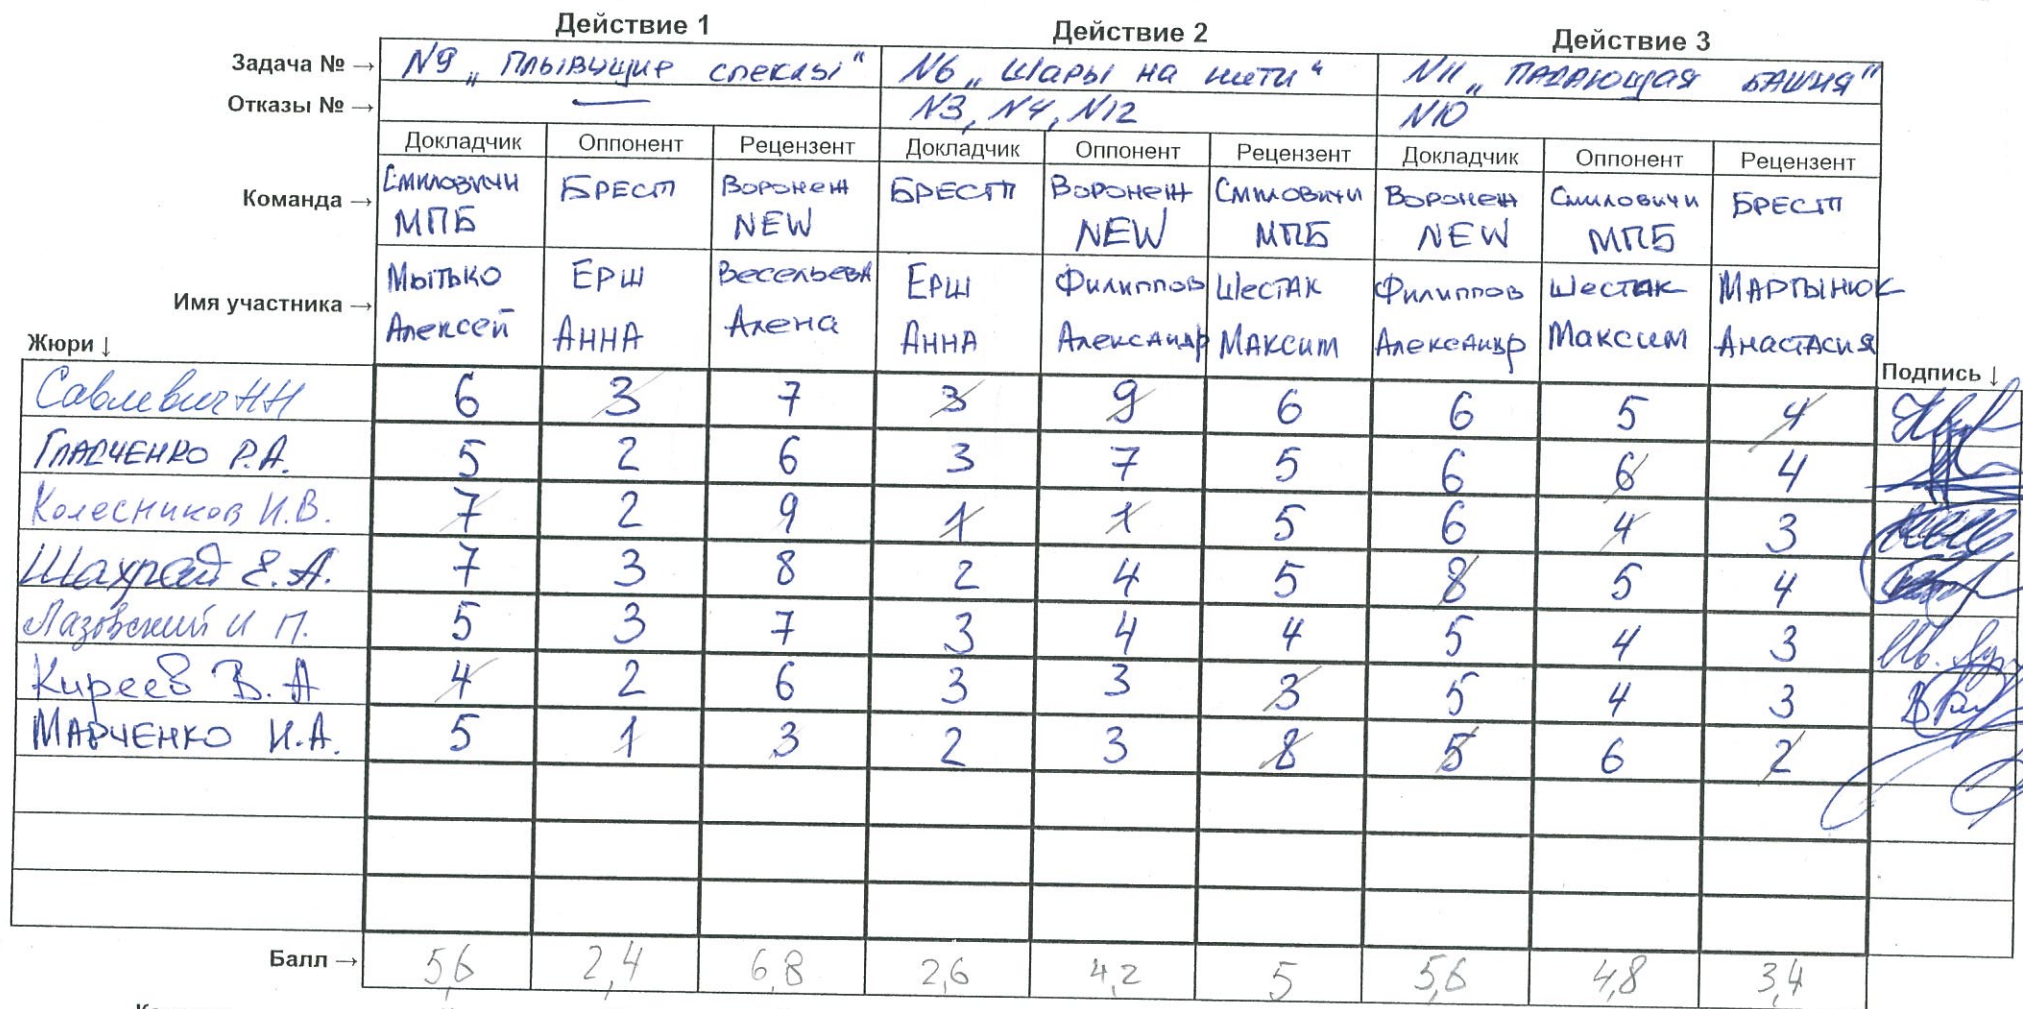 Действие 1 Действие 2 Действие 3
Задача № → N9 „Плывущие спеклы" N6 „Шары на нити" N11 „Падающая башня"
Отказы № → — N3, N4, N12 N10
Докладчик Оппонент Рецензент Докладчик Оппонент Рецензент Докладчик Оппонент Рецензент
Команда → Смиловичи МПБ БРЕСТ Воронеж NEW БРЕСТ Воронеж NEW Смиловичи МПБ Воронеж NEW Смиловичи МПБ БРЕСТ
Имя участника → Мытько Алексей ЕРШ АННА Весельева Алена ЕРШ АННА Филиппов Александр Шестак Максим Филиппов Александр Шестак Максим Мартынюк Анастасия
Жюри ↓ Подпись ↓
Савлевич НН 6 3 7 3 9 6 6 5 4
Гладченко Р.А. 5 2 6 3 7 5 6 6 4
Колесников И.В. 7 2 9 1 1 5 6 4 3
Шахрай Е.А. 7 3 8 2 4 5 8 5 4
Лазовский И П. 5 3 7 3 4 4 5 4 3
Киреев В.А 4 2 6 3 3 3 5 4 3
Марченко И.А. 5 1 3 2 3 8 5 6 2
Балл → 5,6 2,4 6,8 2,6 4,2 5 5,6 4,8 3,4